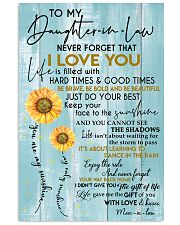 TO MY
Daughter-in-Law
NEVER FORGET THAT
I LOVE YOU
Life is filled with
HARD TIMES & GOOD TIMES
BE BRAVE, BE BOLD AND BE BEAUTIFUL
JUST DO YOUR BEST
Keep your
face to the sunshine
AND YOU CANNOT SEE
THE SHADOWS
Life isn't about waiting
for the storm to pass
IT'S ABOUT LEARNING TO
DANCE IN THE RAIN
Enjoy the ride
And never forget
YOUR WAY BACK HOME
I DIDN'T GIVE YOU The gift of life
Life gave me the GIFT of you
WITH LOVE & kisses
Mom-in-law
you are my sunshine